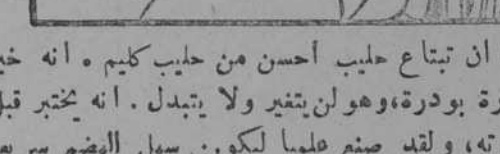 ان تبتاع حليب أحسن من حليب كليم . انه
بودرة،وهو لن يتغير ولا يتبدل . انه يختبر
ولقد صنع علميا ليكون سهل الهضم